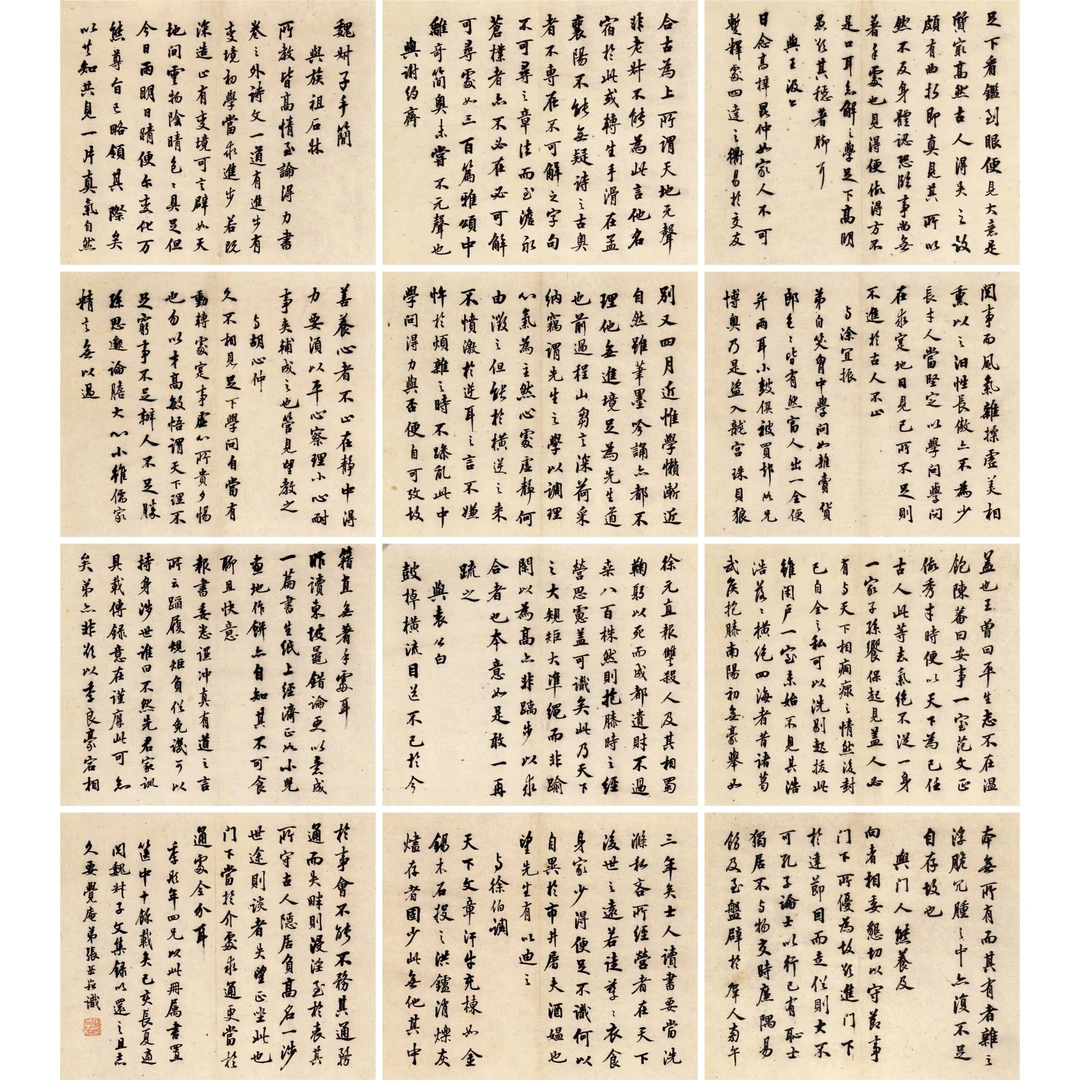 魏叔子手簡
與族祖石牀
所教皆高情至論得力書
卷之外詩文一道有進步有
變境初學當求進步若既
深造必有變境可言辟如天
地間雲物陰晴色色具足但
今日雨明日晴便爾變化萬
態尊旨已略領其際矣
以其知共見一片真氣自然
合古為上所謂天地元聲
非老叔不能為此言他名
宿於此或轉生手滑在孟
襄陽不能無疑詩之古奧
者不專在不可解之字句
不可尋之章法而至澹永
蒼樸者亦不必在必可解
可尋處如三百篇雅頌中
離奇簡奧未嘗不元聲也
與謝約齋
足下看鑑到眼便見大意是
質最高然古人得失之故
頗有西折即真見其所以
然不及身體認恐臨事尚無
著手處也見得便做得方不
是口耳意解之學足下高明
愚欲其穩著聊爾
與王汲公
日念高梓晟仲如家人不可
暫釋處四達之衢易於交友
善養心者不止在靜中得
力要須以平心察理小心耐
事夾輔成之也管見望教之
與胡心仲
久不相見足下學問自當有
動轉處定事虛心所貴少惕
也勿以才高敏悟謂天下理不
足窮事不足辦人不足勝
孫思邈論膽大心小雖儒家
精言無以過
別又四月近惟學懶漸近
自然雖筆墨吟誦亦都不
理他無進境足為先生道
也前過程山劇言深荷采
納竊謂先生之學以調理
心氣為主然心處虛靜何
由澂之但能於橫逆之來
不憤激於逆耳之言不嫌
忤於煩雜之時不躁亂此中
學問得力與否便自可考故
閱事而風氣雜揉虛美相
熏以之汨性長傲亦不為少
長才人當堅定以學問學問
在求定地日見己所不足則
不進於古人不止
與涂宜振
弟自笑胷中學問如雜賣貨
郎色色皆有然富人出一金便
并兩耳小鼓俱被買卻如兄
博奧乃是盜入龍宮珠貝狼
籍直無著手處耳
昨讀東坡鼂錯論更以意成
一篇書生紙上經濟正如小兒
畫地作餅亦自知其不可食
聊且快意
報書委悉謹冲真有道之言
所云蹈履規矩負任免譏可以
持身涉世誰曰不然先君家訓
具載傳錄意在謹厚此可志
矣弟亦非欲以季良豪宕相
徐元直報讐殺人及其相蜀
鞠躬以死而成都遺財不過
桑八百株然則抱膝時之經
營思慮蓋可識矣此乃天下
之大規矩大準繩而非踰
閑以為高亦非踽步以求
合者也本意如是敢一再
疏之
與袁公白
鼓棹橫流目送不已於今
蓋也王曾曰平生志不在溫
飽陳蕃曰安事一室范文正
做秀才時便以天下為己任
古人此等去氣絕不從一身
一家子孫饗保起見蓋人必
有與天下相痾癢之情然後封
己自全之私可以洗剔起拔此
雖閉戶一室未始不見其浩
浩落落橫絕四海者昔諸葛
武侯抱膝南陽初無豪舉如
於事會不能不務其通務
通而失畔則漫淫至於喪其
所守古人隱居負高名一涉
世途則談者失望正坐此也
門下當於介處求通更當於
通處全介耳
辛卯年四兄以此冊屬書置
篋中十餘載矣己亥長夏適
閱魏叔子文集錄以還之且志
久要覺庵弟張若澂識
三年矣士人讀書要當洗
滌私吝所經營者在天下
後世之遠若徒孳孳衣食
身家少得便足不識何以
自異於市井屠夫酒媼也
望先生有以迪之
與徐伯調
天下文章汗牛充棟如金
錫木石投之洪鑪消爍灰
燼存者固少此無他其中
本無所有而其有者雜之
浮脆冗腫之中亦復不足
自存故也
與門人熊養及
向者相委懇切以守節事
門下所優為故欲進門下
於達節因而走作則大不
可孔子論士以行己有恥士
獨居不與物交時廉隅易
飭及至盤辟於羣人旁午